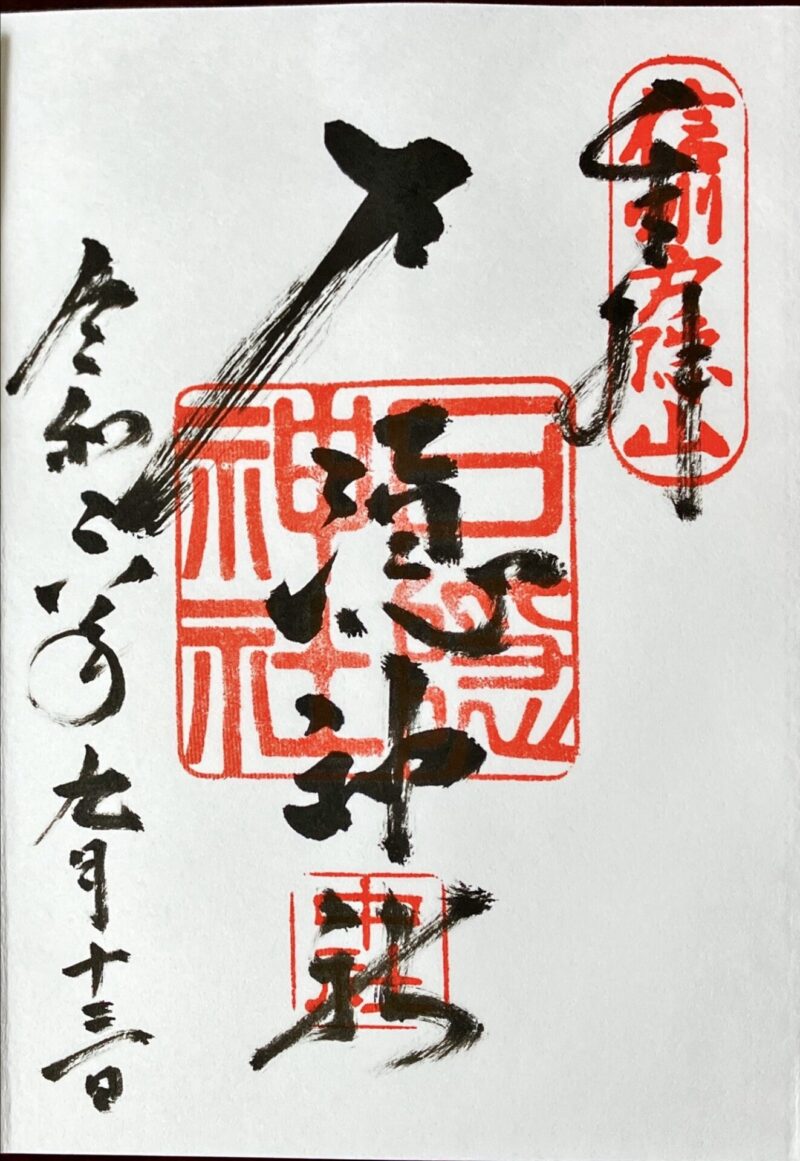 奉拝
信州戸隠山
戸隠神社
戸隠
神社
中社
令和六年九月十三日